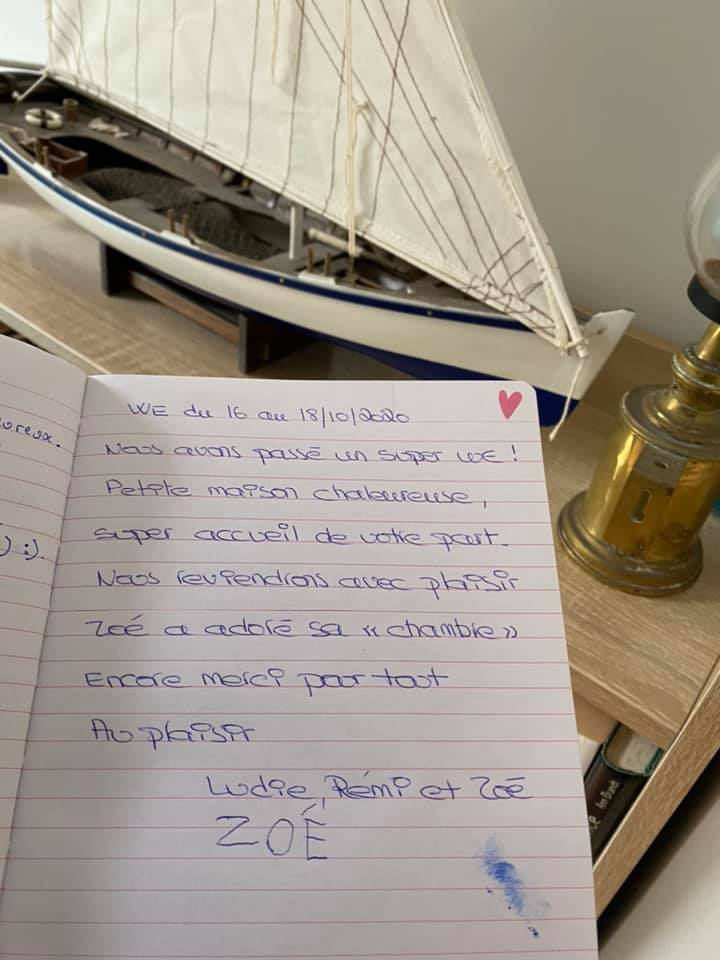 WE du 16 au 18/10/2020
Nous avons passé un super WE !
Petite maison chaleureuse,
super accueil de votre part.
Nous reviendrons avec plaisir
Zoé a adoré sa « chambre »
Encore merci pour tout
Au plaisir
Ludie, Rémi et Zoé
ZOÉ
:).